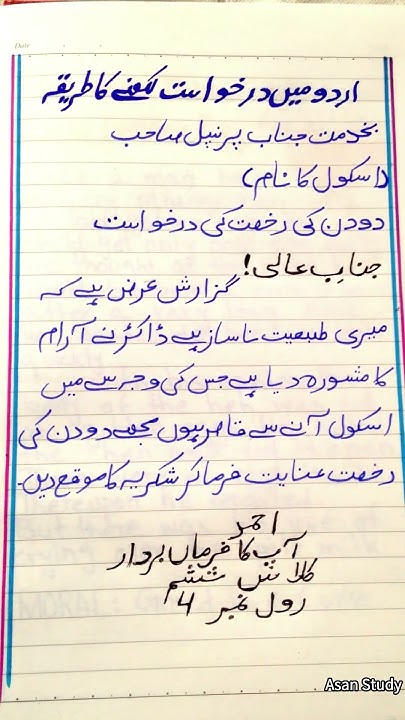 Date
اردو میں درخواست لکھنے کا طریقہ
بخدمت جناب پرنسپل صاحب
(اسکول کا نام)
دو دن کی رخصت کی درخواست
جنابِ عالی!
گزارش عرض ہے کہ
میری طبیعت ناساز ہے ڈاکٹر نے آرام
کا مشورہ دیا ہے جس کی وجہ سے میں
اسکول آنے سے قاصر ہوں مجھے دو دن کی
رخصت عنایت فرما کر شکریہ کا موقع دیں۔
احمد
آپ کا فرماں بردار
کلاس ششم
رول نمبر 4
Asan Study